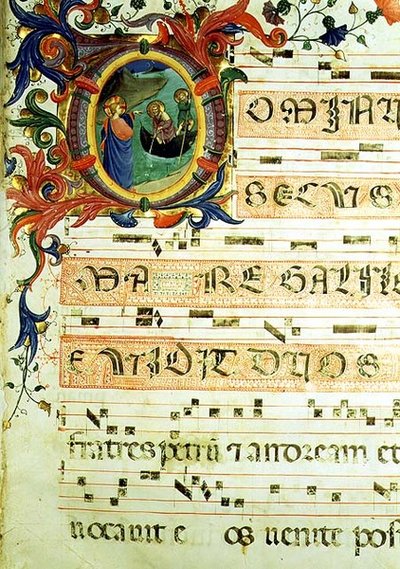 DOMINU
SECUS
MA RE GALILE
E UIDIT DUOS
fratres petrū ⁊ andream et
uocauit e os uenite post